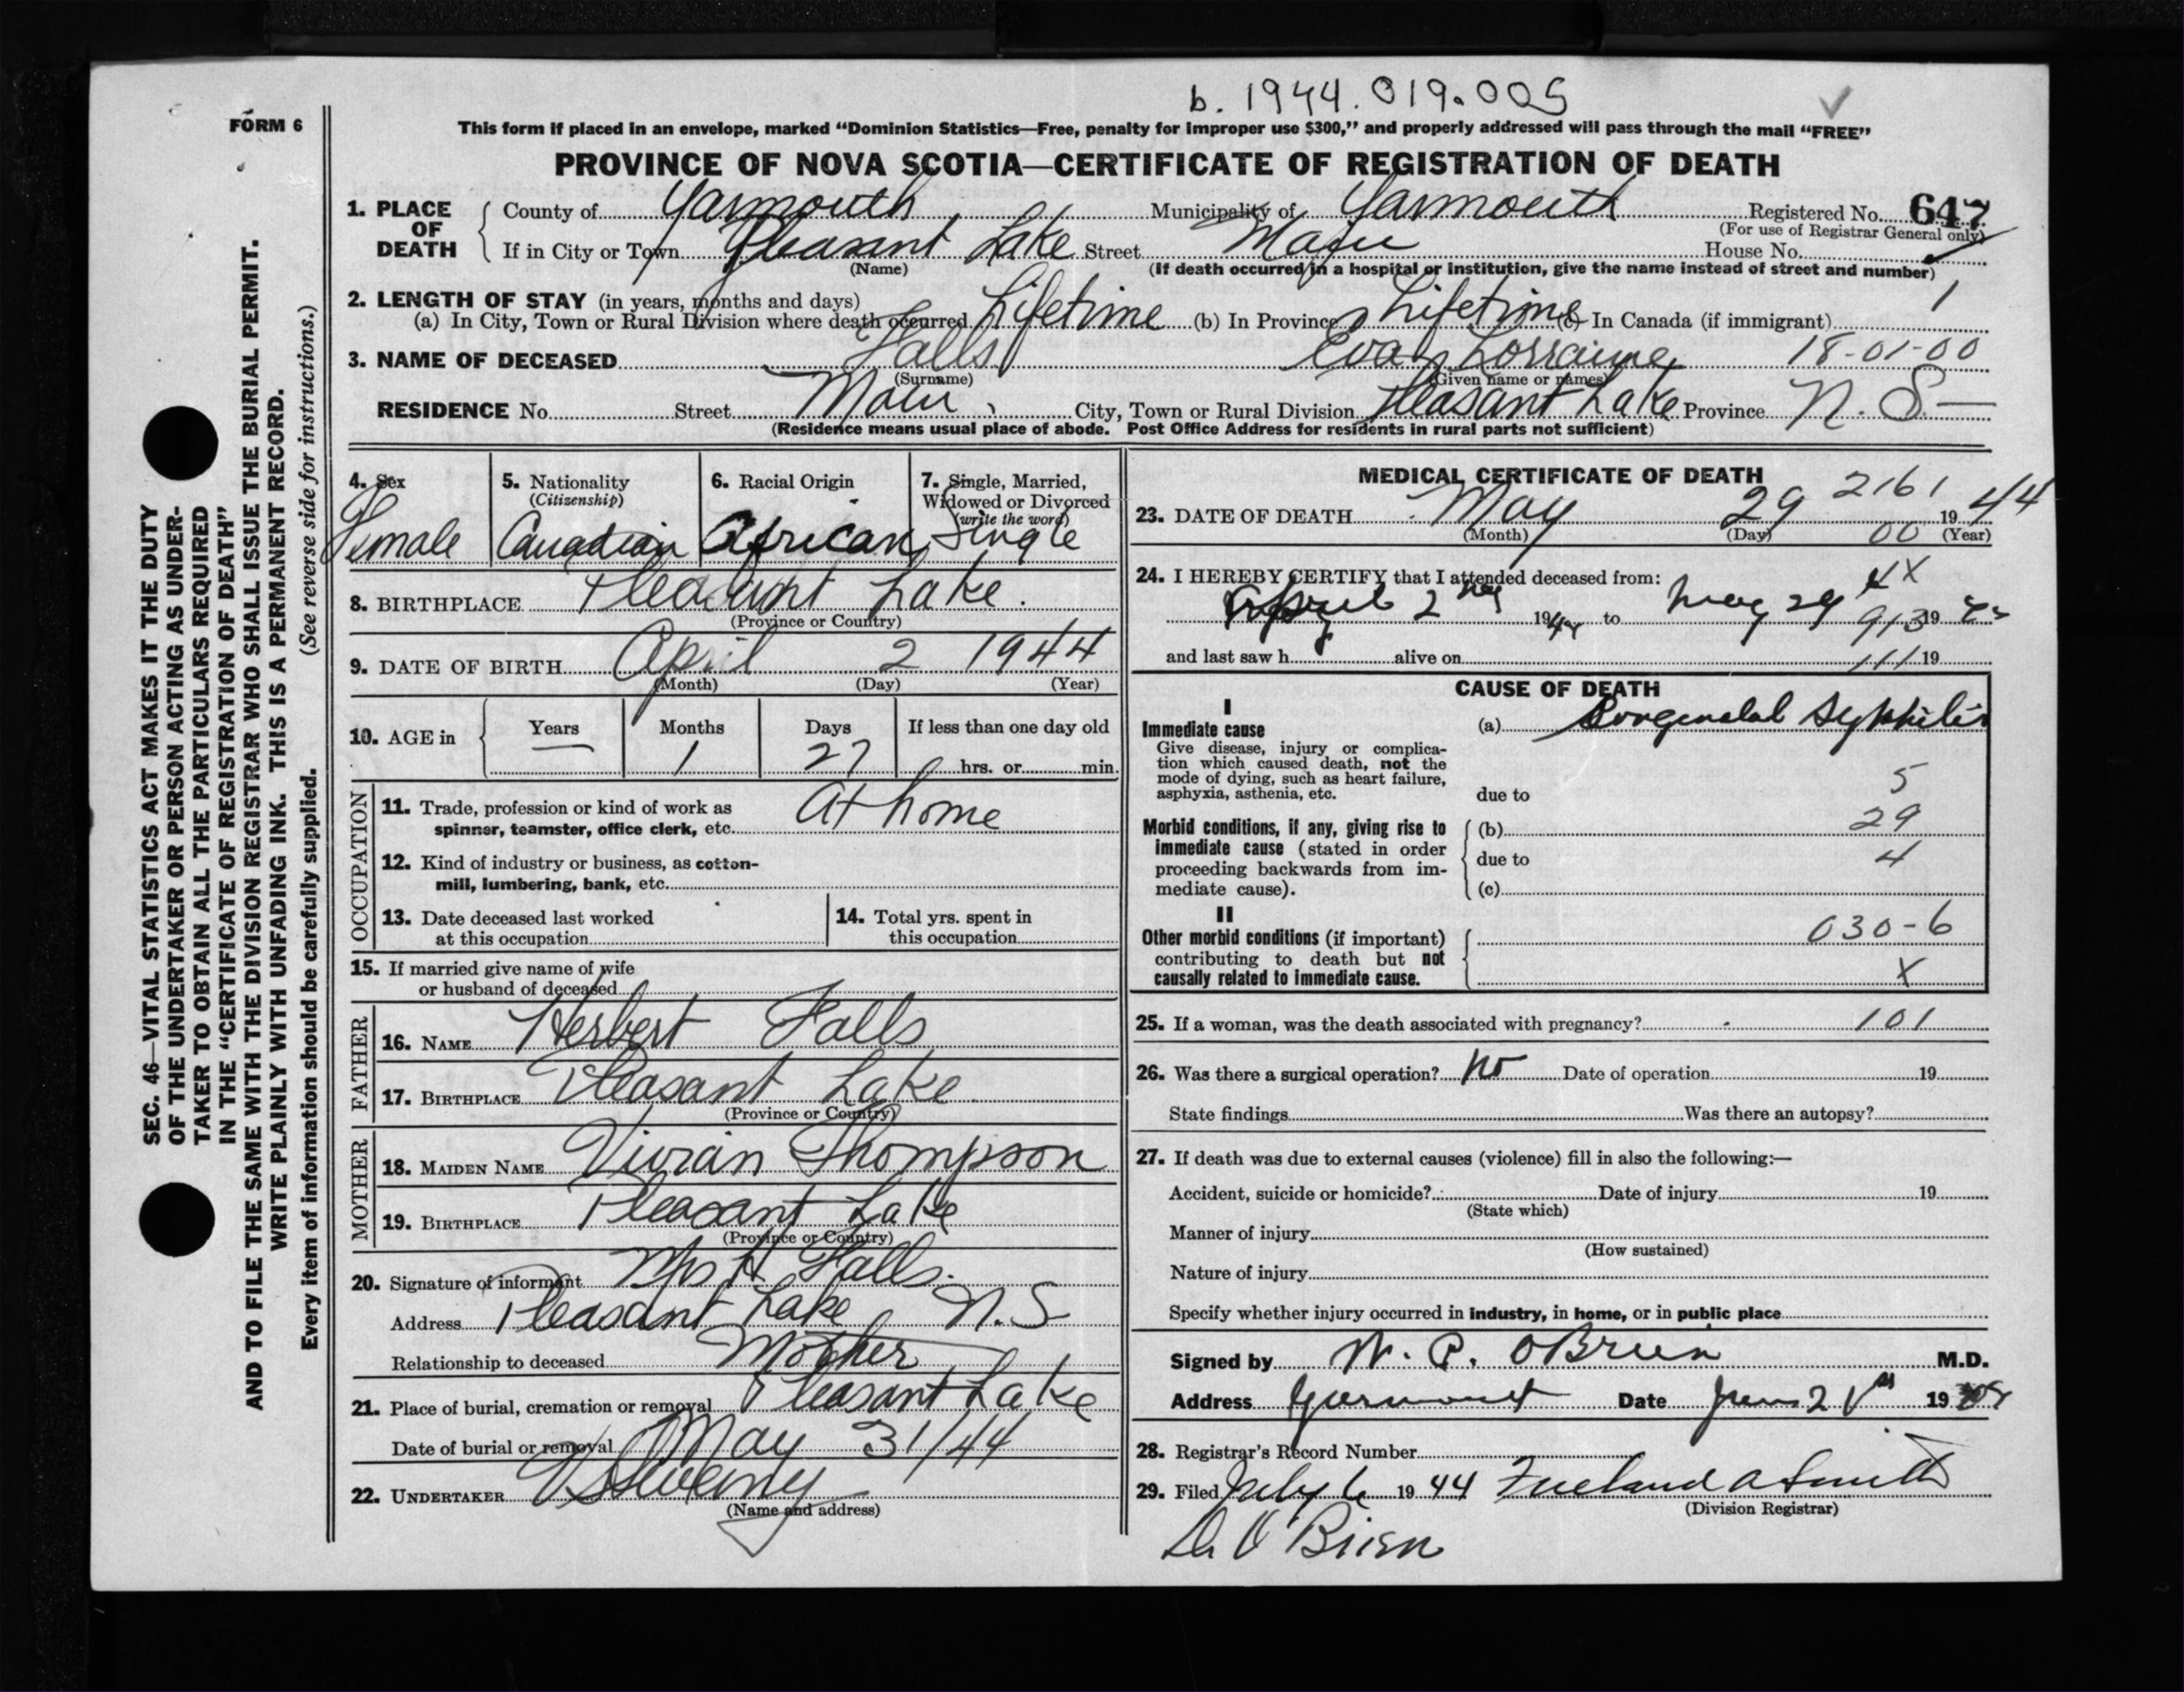 b. 1944.019.005
FORM 6
This form if placed in an envelope, marked "Dominion Statistics—Free, penalty for improper use $300," and properly addressed will pass through the mail "FREE"
PROVINCE OF NOVA SCOTIA—CERTIFICATE OF REGISTRATION OF DEATH
1. PLACE OF DEATH County of Yarmouth Municipality of Yarmouth Registered No. 647
(For use of Registrar General only)
If in City or Town Pleasant Lake Street Main House No.
(Name) (If death occurred in a hospital or institution, give the name instead of street and number)
2. LENGTH OF STAY (in years, months and days) 1
(a) In City, Town or Rural Division where death occurred Lifetime (b) In Province Lifetime (c) In Canada (if immigrant)
3. NAME OF DECEASED Falls Eva Lorraine 18-01-00
(Surname) (Given name or names)
RESIDENCE No. Street Main City, Town or Rural Division Pleasant Lake Province N. S—
(Residence means usual place of abode. Post Office Address for residents in rural parts not sufficient)
4. Sex 5. Nationality 6. Racial Origin 7. Single, Married,
(Citizenship) Widowed or Divorced
(write the word)
Female Canadian African Single
8. BIRTHPLACE Pleasant Lake.
(Province or Country)
9. DATE OF BIRTH April 2 1944
(Month) (Day) (Year)
10. AGE in Years Months Days If less than one day old
— 1 27 hrs. or min.
OCCUPATION
11. Trade, profession or kind of work as
spinner, teamster, office clerk, etc. At home
12. Kind of industry or business, as cotton-
mill, lumbering, bank, etc.
13. Date deceased last worked
at this occupation
14. Total yrs. spent in
this occupation
15. If married give name of wife
or husband of deceased
FATHER
16. NAME Herbert Falls
17. BIRTHPLACE Pleasant Lake
(Province or Country)
MOTHER
18. MAIDEN NAME Vivian Thompson
19. BIRTHPLACE Pleasant Lake
(Province or Country)
20. Signature of informant Mrs H Falls.
Address Pleasant Lake N.S
Relationship to deceased Mother
21. Place of burial, cremation or removal Pleasant Lake
Date of burial or removal May 31/44
22. UNDERTAKER V Sweeny
(Name and address)
MEDICAL CERTIFICATE OF DEATH
2161
23. DATE OF DEATH May 29 1944
(Month) (Day) 00 (Year)
24. I HEREBY CERTIFY that I attended deceased from: 4X
April 2nd 1944 to May 29 913 19
and last saw h alive on 111 19
CAUSE OF DEATH
I
Immediate cause (a) Congenital Syphilis
Give disease, injury or complica-
tion which caused death, not the
mode of dying, such as heart failure,
asphyxia, asthenia, etc.
5
due to
29
Morbid conditions, if any, giving rise to
immediate cause (stated in order
proceeding backwards from im-
mediate cause).
(b)
due to 4
(c)
II
Other morbid conditions (if important)
contributing to death but not
causally related to immediate cause.
030-6
X
25. If a woman, was the death associated with pregnancy? 101
26. Was there a surgical operation? No Date of operation 19
State findings Was there an autopsy?
27. If death was due to external causes (violence) fill in also the following:—
Accident, suicide or homicide? Date of injury 19
(State which)
Manner of injury
(How sustained)
Nature of injury
Specify whether injury occurred in industry, in home, or in public place
Signed by W. P. OBrien M.D.
Address Yarmouth Date 19
28. Registrar's Record Number
29. Filed July 6 19 44 A Smith
(Division Registrar)
Dr O'Brien
SEC. 46—VITAL STATISTICS ACT MAKES IT THE DUTY
OF THE UNDERTAKER OR PERSON ACTING AS UNDER-
TAKER TO OBTAIN ALL THE PARTICULARS REQUIRED
IN THE "CERTIFICATE OF REGISTRATION OF DEATH"
AND TO FILE THE SAME WITH THE DIVISION REGISTRAR WHO SHALL ISSUE THE BURIAL PERMIT.
WRITE PLAINLY WITH UNFADING INK. THIS IS A PERMANENT RECORD.
Every item of information should be carefully supplied. (See reverse side for instructions.)